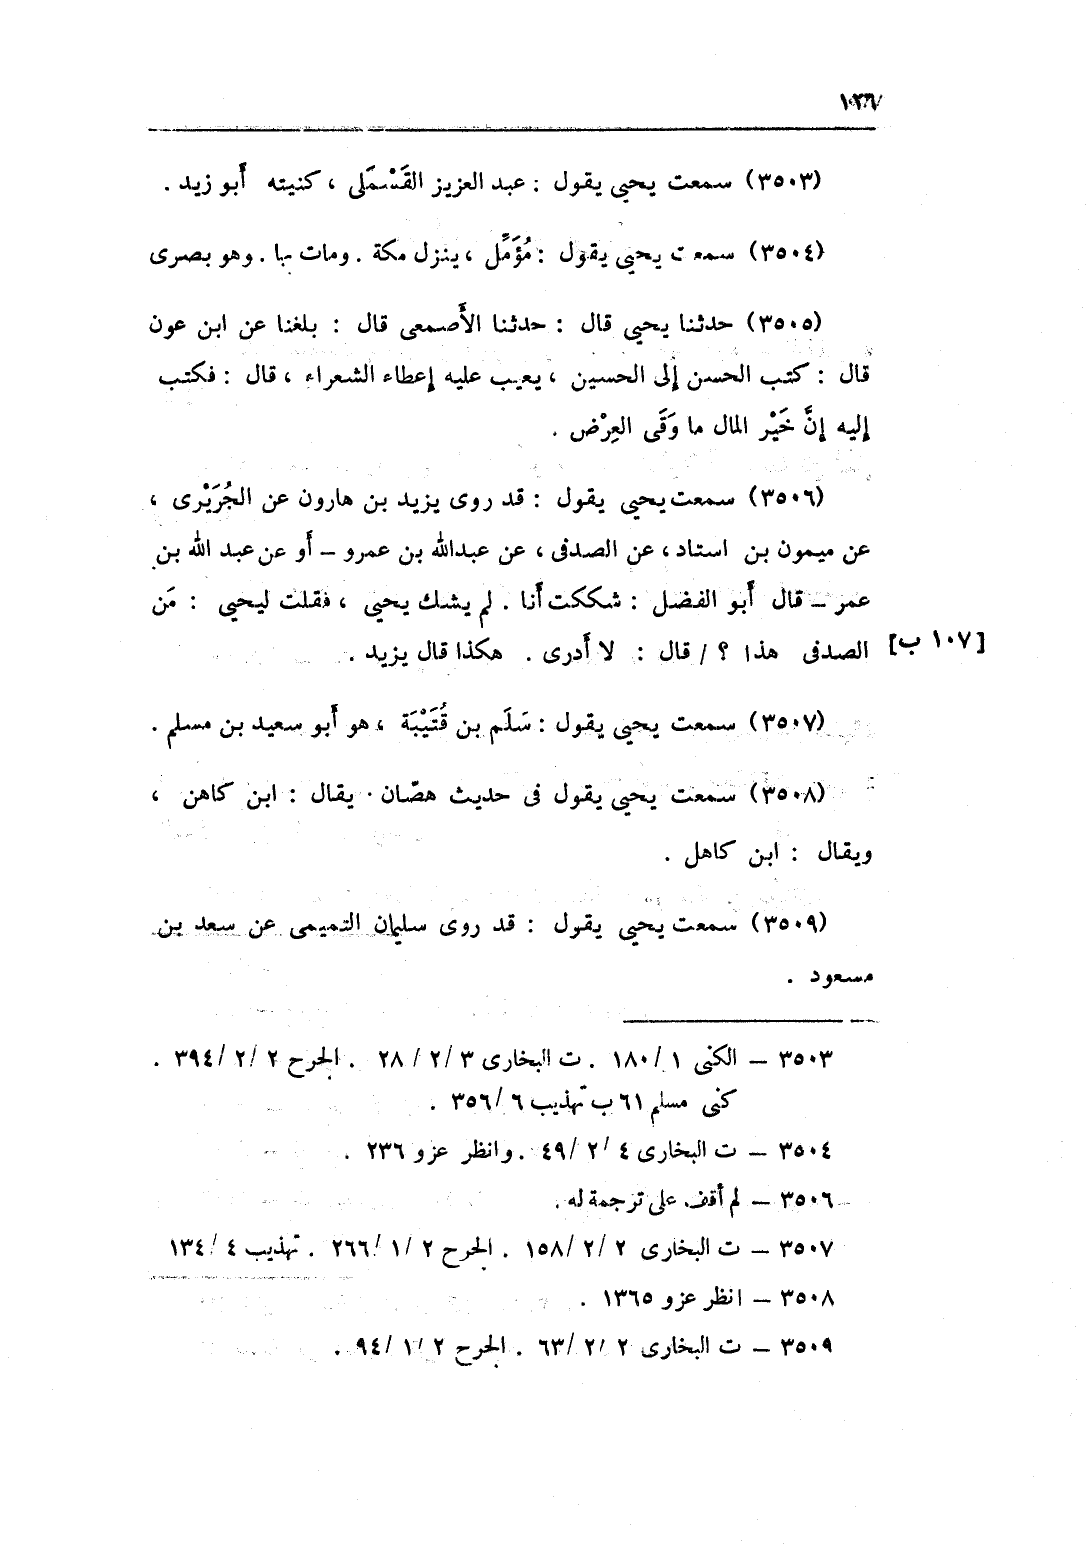 (٣٥٠٣) سمعت يحيى يقول : عبد العزيز القَسْمَلى ، كنيته أَبو زيد .
(٣٥٠٤) سمعت يحيى يقول : مُؤَمَّل ، ينزل مكة . ومات بها . وهو بصرى
(٣٥٠٥) حدثنا يحيى قال : حدثنا الأَصمعى قال : بلغنا عن ابن عون
قال : كتب الحسن إلى الحسين ، يعيب عليه إعطاء الشعراء ، قال : فكتب
إليه إنَّ خَيْر المال ما وَقَى العِرْض .
(٣٥٠٦) سمعت يحيى يقول : قد روى يزيد بن هارون عن الجُرَيْرى ،
عن ميمون بن استاد ، عن الصدفى ، عن عبدالله بن عمرو – أَو عن عبد الله بن
عمر – قال أَبو الفضل : شككت أَنا . لم يشك يحيى ، فقلت ليحيى : مَن
الصدفى هذا ؟ / قال : لا أَدرى . هكذا قال يزيد . [١٠٧ ب]
(٣٥٠٧) سمعت يحيى يقول : سَلَم بن قُتَيْبَة ، هو أَبو سعيد بن مسلم .
(٣٥٠٨) سمعت يحيى يقول فى حديث هصّان . يقال : ابن كاهن ،
ويقال : ابن كاهل .
(٣٥٠٩) سمعت يحيى يقول : قد روى سليمان التميمى عن سعد بن
مسعود .
٣٥٠٣ – الكنى ١ /١٨٠ . ت البخارى ٣ /٢ / ٢٨ . الجرح ٢ /٢ /٣٩٤ .
كنى مسلم ٦١ ب تهذيب ٦ /٣٥٦ .
٣٥٠٤ – ت البخارى ٤ /٢ /٤٩ . وانظر عزو ٢٣٦ .
٣٥٠٦ – لم أقف على ترجمة له .
٣٥٠٧ – ت البخارى ٢ /٢ /١٥٨ . الجرح ٢ /١ /٢٦٦ . تهذيب ٤ /١٣٤
٣٥٠٨ – انظر عزو ١٣٦٥ .
٣٥٠٩ – ت البخارى ٢ /٢ /٦٣ . الجرح ٢ /١ /٩٤ .